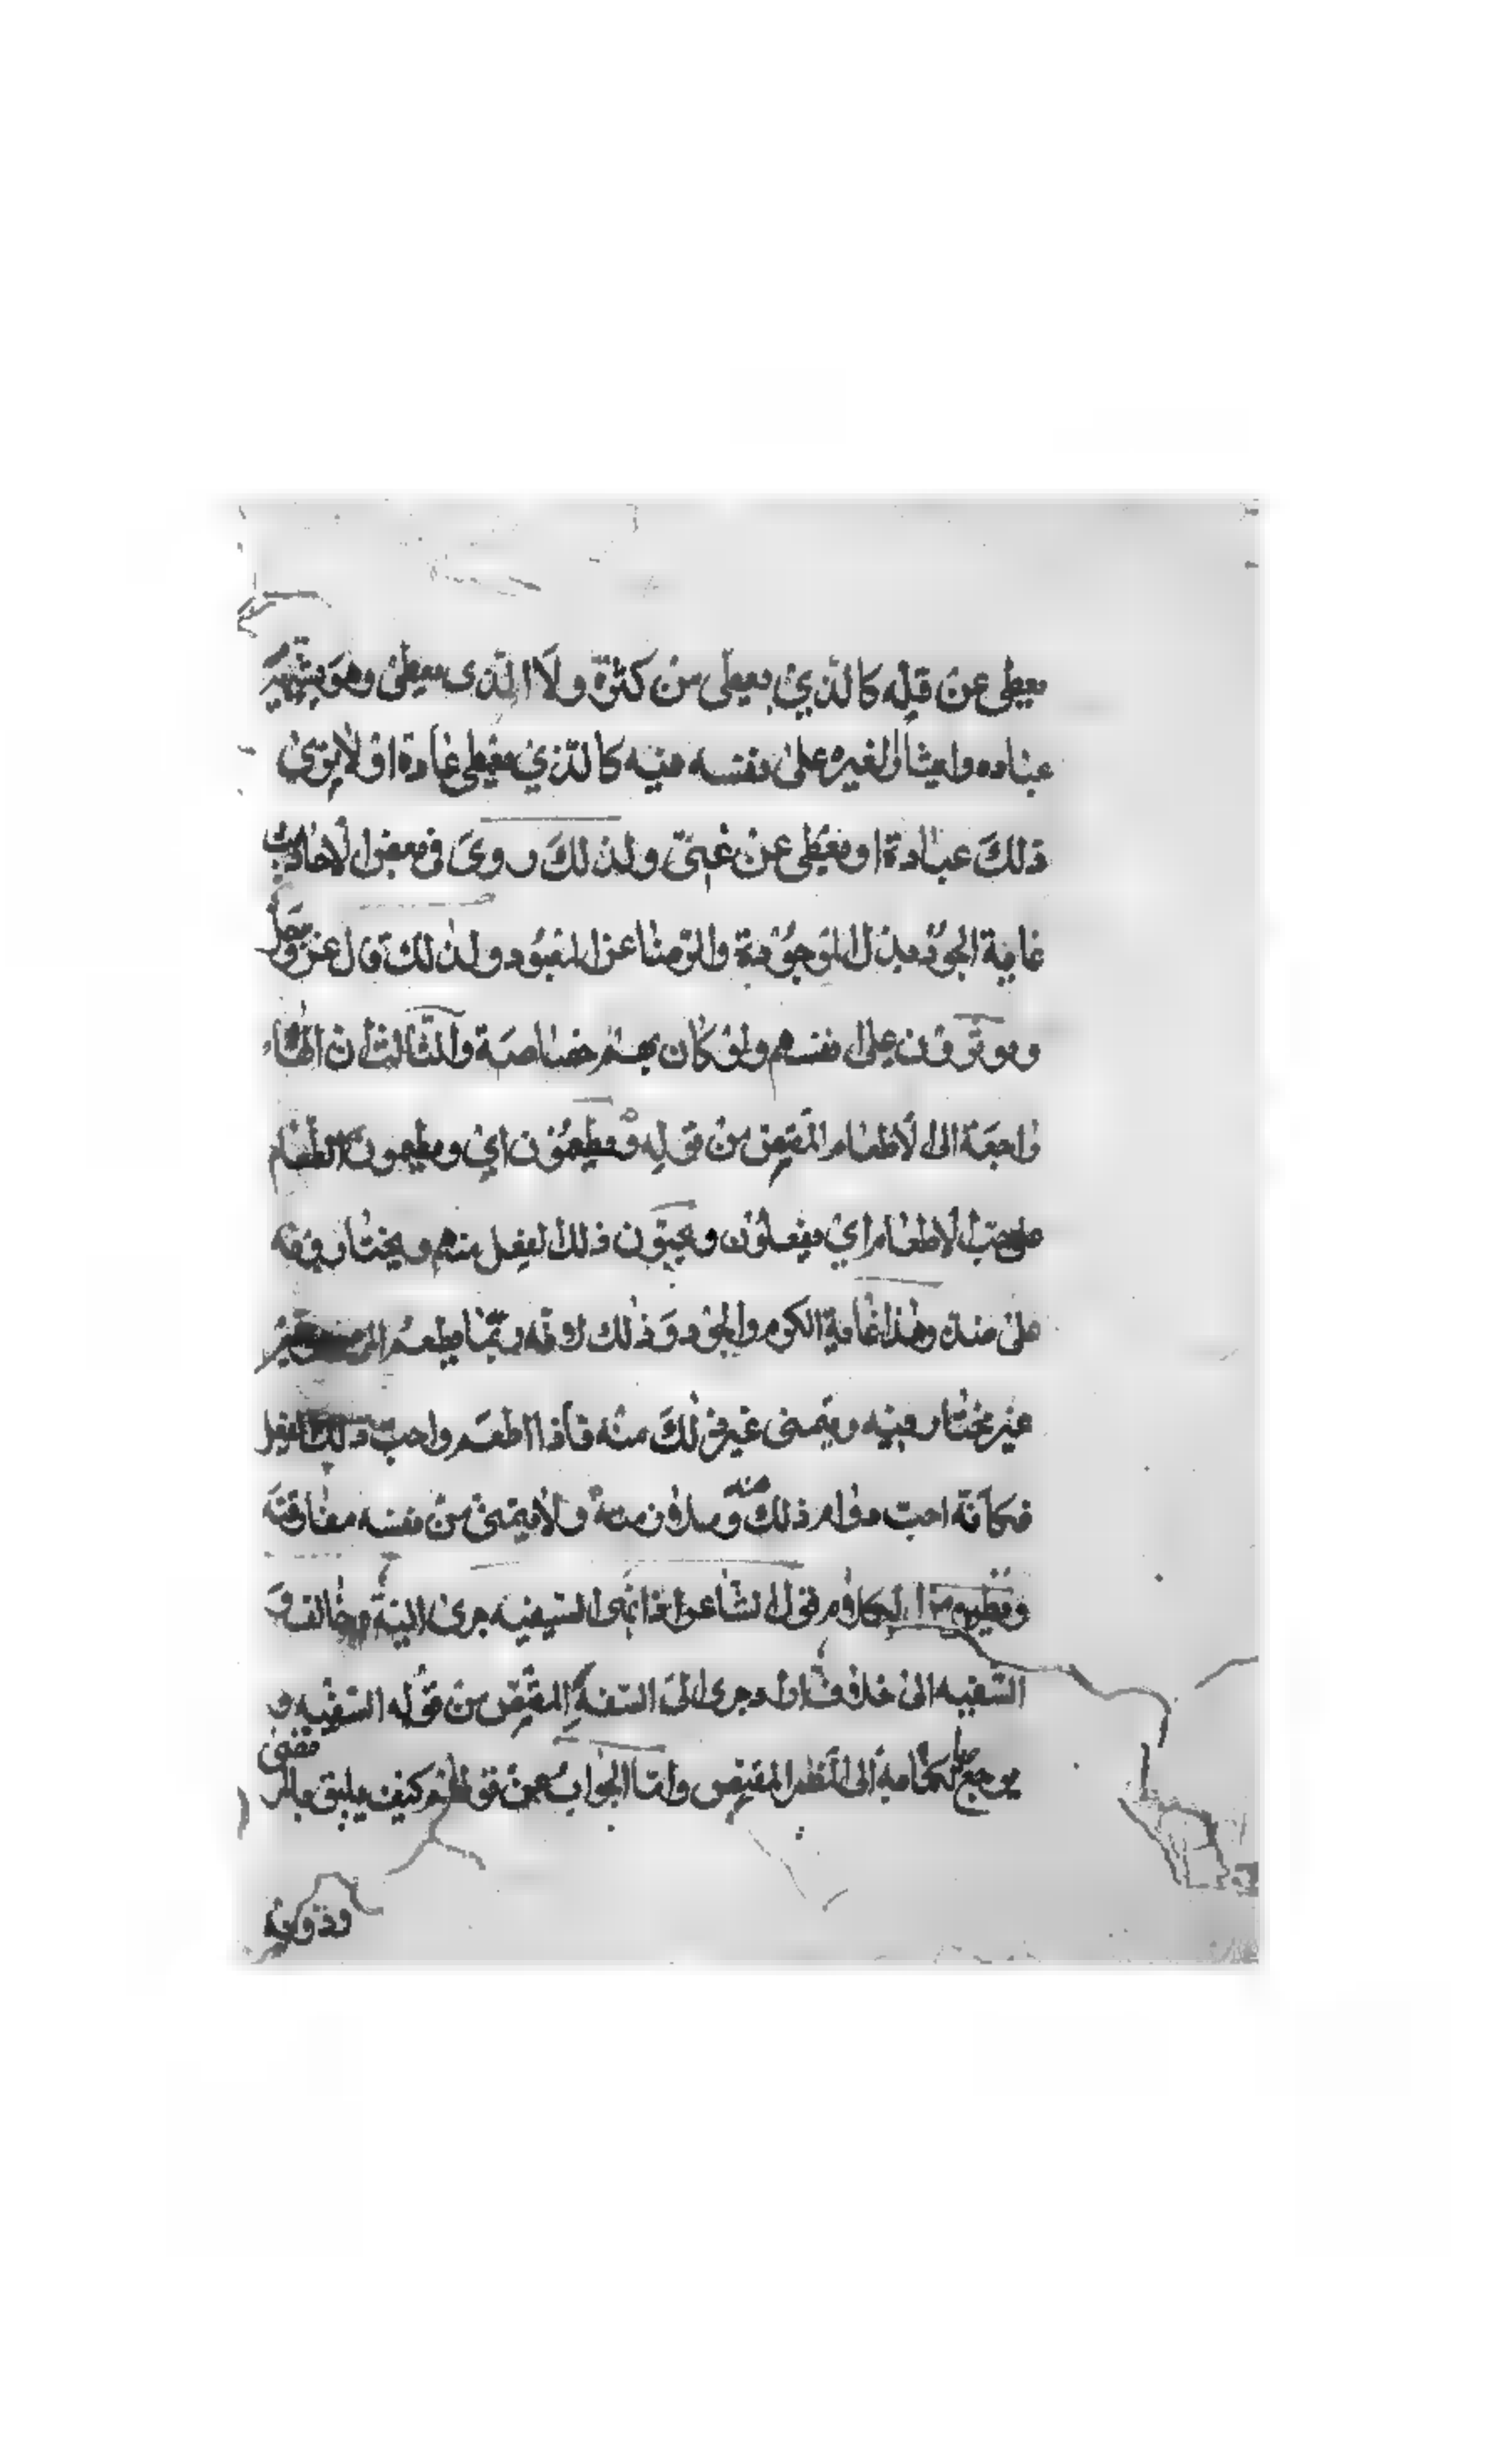 يعطى عن قله كالذي يعطى من كثرة ولا الذى يعطى وهو يشتهيه
عباده وايثار لغيره على نفسه فيه كالذي يعطى عادة او لا يرى
ذلك عبادة او يعطى عن غنى ولذلك روى فى بعض الاحاديث
غاية الجود بذل الموجود والرضا عن المعبود ولذلك قال عز وجل
ويوثرون على انفسهم ولو كان بهم خصاصة والثالث ان الهاء
راجعة الى الاطعام المقتص من قوله ويطعمون اي ويطعمون الطعام
على حب الاطعام اي يفعلون ويحبون ذلك الفعل منهم ويختارونه
على ضده وهذا غاية الكرم والجود وذلك انه ربما يطعم المرء
غير مختار فيه ويتمنى غير ذلك منه فاذا اطعم واحب ذلك الفعل
فكانه احب دوام ذلك منه ولا يتمنى من نفسه مفارقته
ونظيره من الكلام قول الشاعر اذا نهى السفيه جرى اليه وخالف و
السفيه الى خلاف فاراد جرى الى السفه المقتص من قوله السفيه و
يرجع الكناية الى اللفظ المقتص واما الجواب عن قولهم كيف يليق بالمرتضى
وذويه